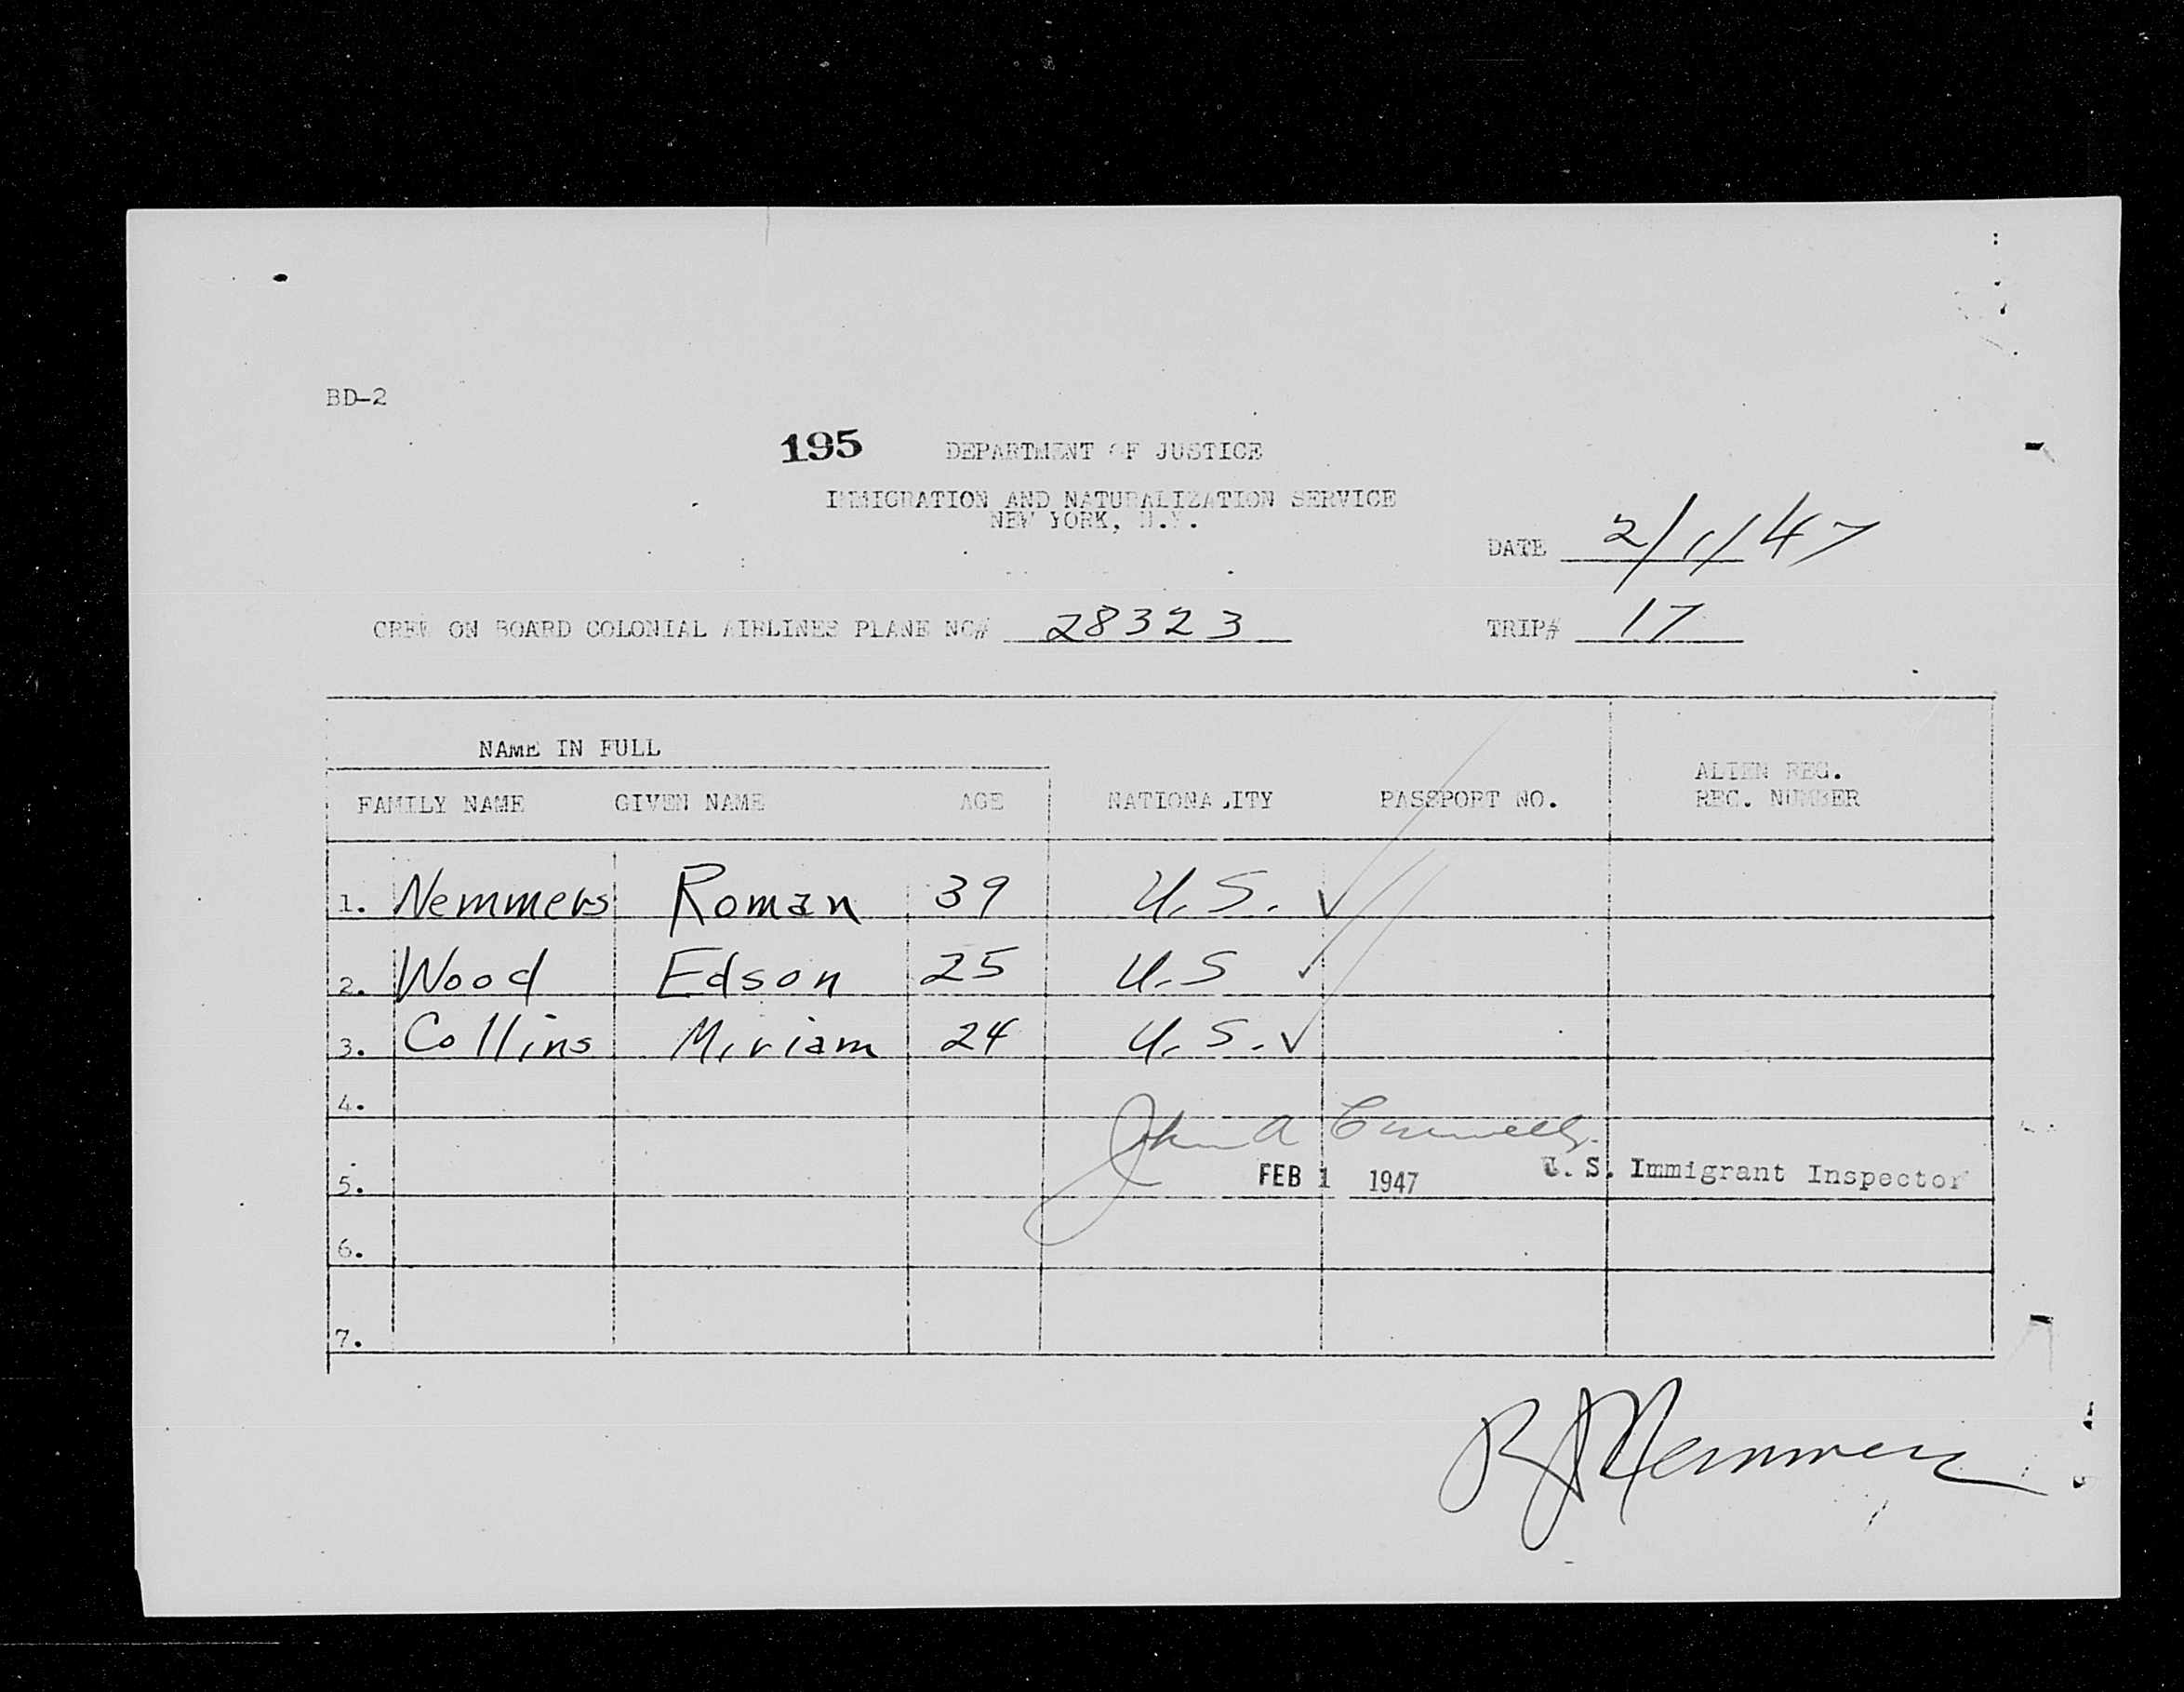 BD-2
195 DEPARTMENT OF JUSTICE
IMMIGRATION AND NATURALIZATION SERVICE
NEW YORK, N.Y.
DATE 2/1/47
CREW ON BOARD COLONIAL AIRLINES PLANE NC# 28323 TRIP# 17
NAME IN FULL
ALIEN REG.
FAMILY NAME GIVEN NAME AGE NATIONALITY PASSPORT NO. REC. NUMBER
1. Nemmers Roman 39 U.S. ✓
2. Wood Edson 25 U.S ✓
3. Collins Miriam 24 U.S. ✓
4.
John A
FEB 1 1947 U. S. Immigrant Inspector
5.
6.
7.
RJ Nemmers